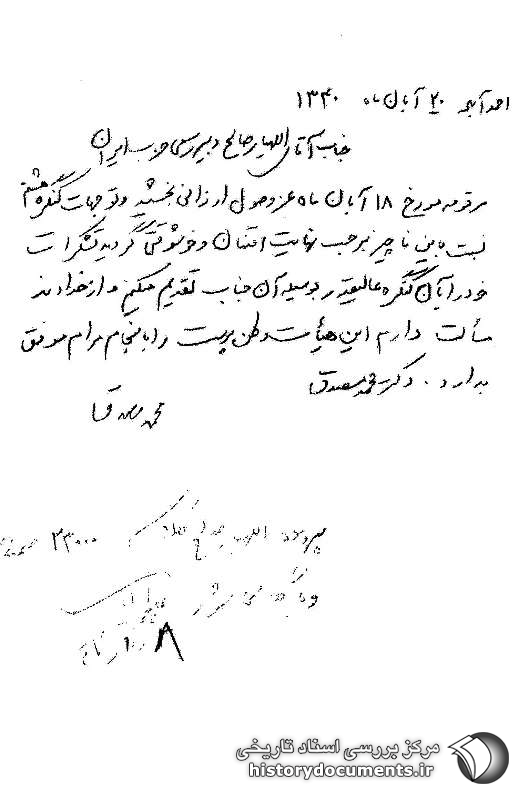 احمدآباد ۲۰ آبان ماه ۱۳۴۰
جناب آقای اللهیار صالح دبیر رسمی حزب ایران
مرقومه مورخ ۱۸ آبان ماه عز وصول ارزانی بخشید و توجهات کنگره هشتم
نسبت باین ناچیز موجب نهایت امتنان و خوشوقتی گردید تشکرات
خود را بآن کنگره عالیقدر بوسیله آن جناب تقدیم میکنم و از خداوند
مسألت دارم این هیأت وطن پرست را بانجام مرام موفق
بدارد. دکتر محمد مصدق
محمد مصدق
پرونده اللهیار صالح کلاسه ۲۳۰۰۰
بایگانی شود
۸
مرکز بررسی اسناد تاریخی
historydocuments.ir